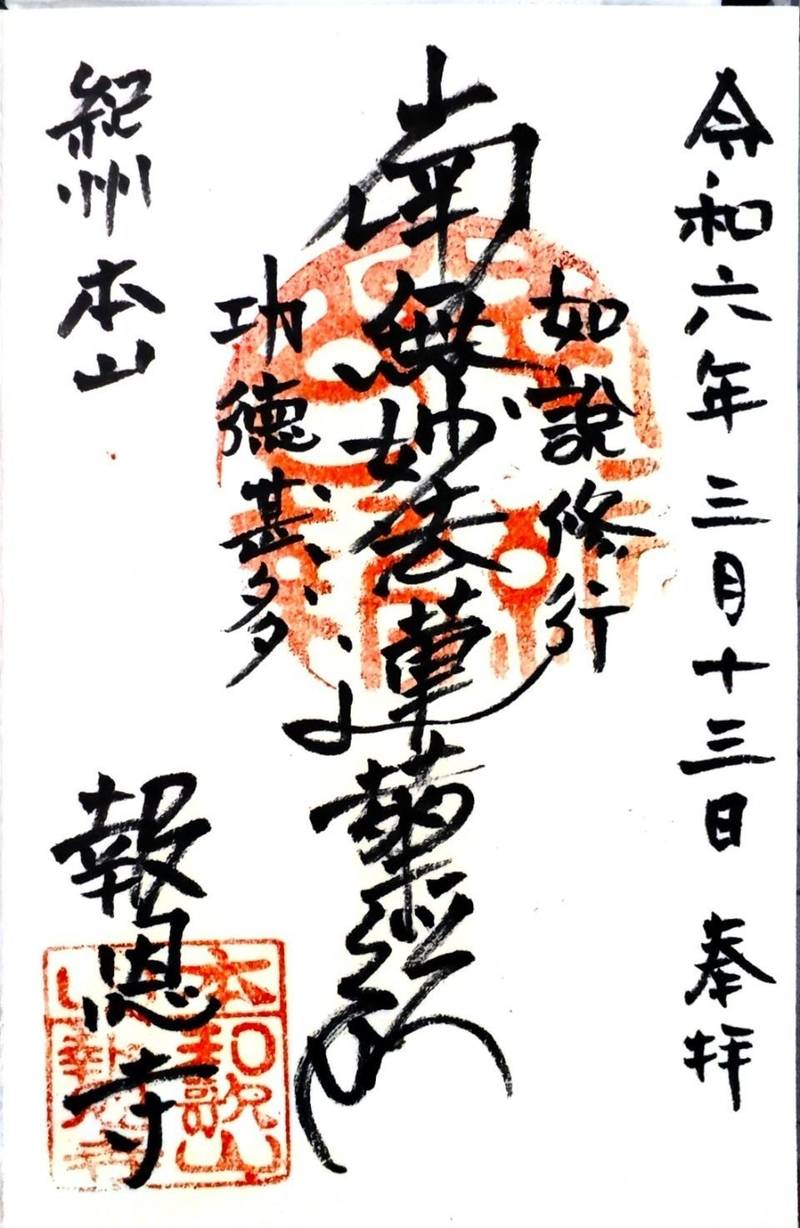 令和六年三月十三日 奉拝
如説修行
南無妙法蓮華経
功徳甚多
紀州本山
報恩寺